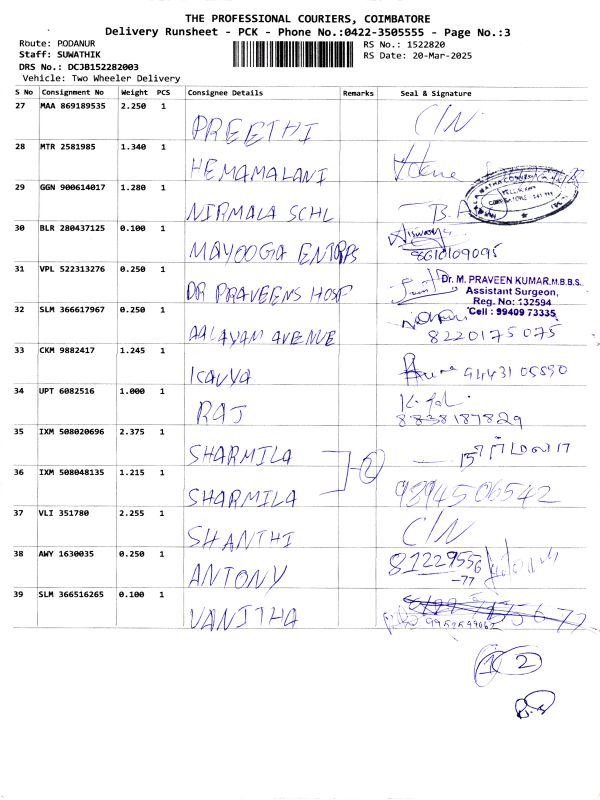 THE PROFESSIONAL COURIERS, COIMBATORE
Delivery Runsheet - PCK - Phone No.:0422-3505555 - Page No.:3
Route: PODANUR
RS No.: 1522820
Staff: SUWATHIK
RS Date: 20-Mar-2025
DRS No.: DCJB152282003
Vehicle: Two Wheeler Delivery
S No Consignment No Weight PCS Consignee Details Remarks Seal & Signature
27 MAA 869189535 2.250 1 PREETHI C/N
28 MTR 2581985 1.340 1 HEMAMALANI
29 GGN 900614017 1.280 1 NIRMALA SCHL
30 BLR 280437125 0.100 1 MAYOOGA ENTRPS 8610109095
31 VPL 522313276 0.250 1 DR PRAVEENS HOSP
Dr. M. PRAVEEN KUMAR,M.B.B.S.,
Assistant Surgeon,
Reg. No: 132594
Cell : 99409 73335
32 SLM 366617967 0.250 1 AALAYAM AVENUE 8220175075
33 CKM 9882417 1.245 1 KAVYA 9444310 5590
34 UPT 6082516 1.000 1 RAJ 8838187829
35 IXM 508020696 2.375 1 SHARMILA 2
36 IXM 508048135 1.215 1 SHARMILA 9394506542
37 VLI 351780 2.255 1 SHANTHI C/N
38 AWY 1630035 0.250 1 ANTONY 81229556
-77
39 SLM 366516265 0.100 1 VANITHA
2